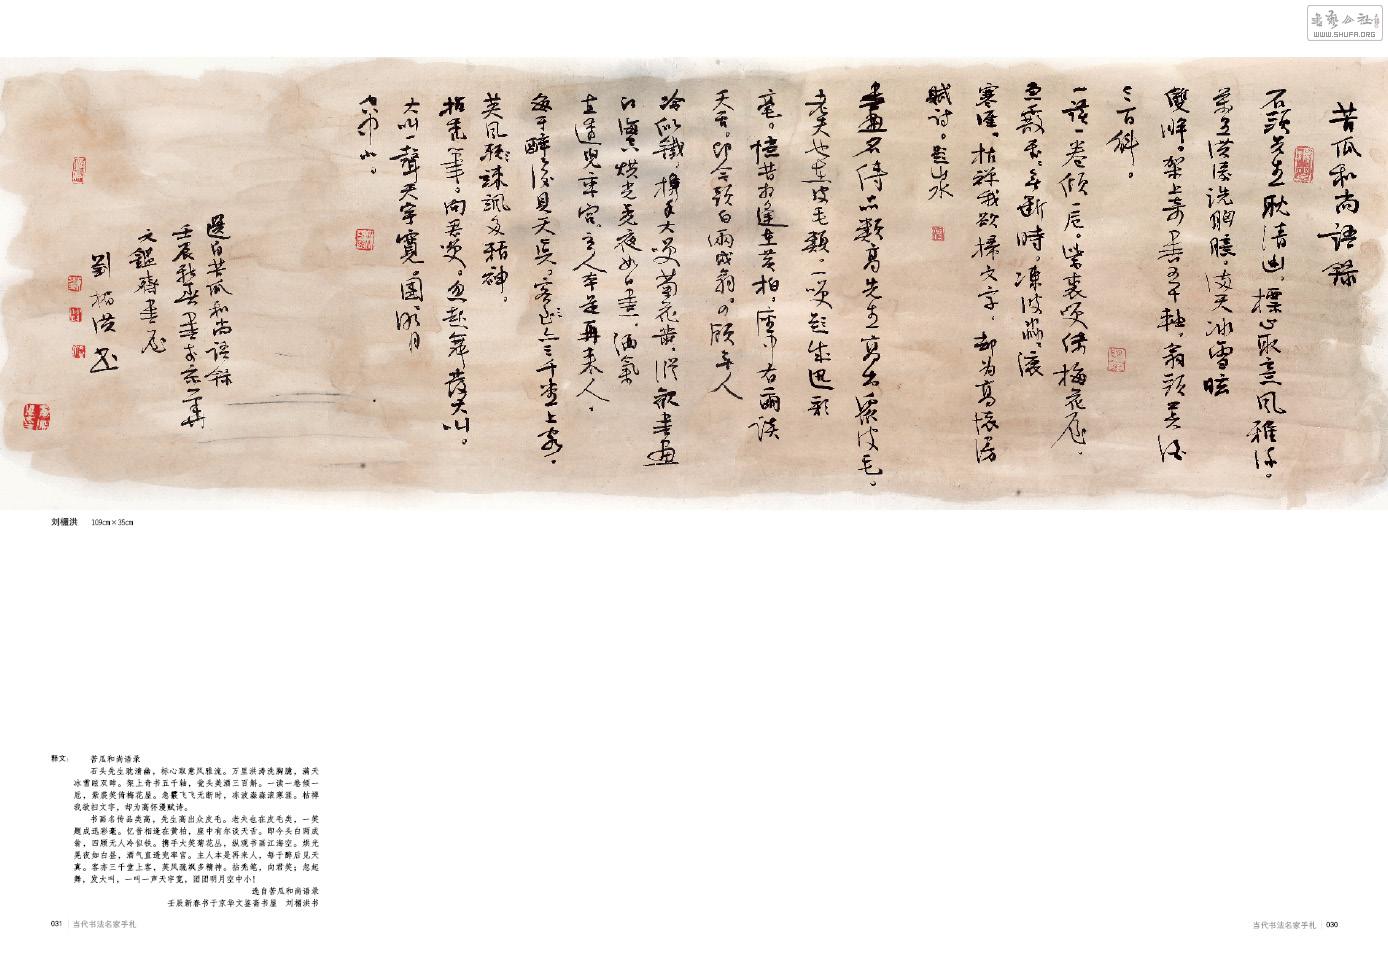 书艺公社
WWW.SHUFA.ORG
苦瓜和尚语录
石頭先生耽清幽，標心取意风雅流。
萬里洪濤洗胸臆，满天冰雪眩
雙眸。架上奇書五千軸，甕頭美酒
三百斛。
一读一卷倾一卮。紫裘笑倚梅花屋。
忽霰飞飞无断時，凍波淼淼滚
寒涯，枯禅我欲掃文字，却为高懷漫
赋诗。題山水
書畫名傳品類高，先生高出眾皮毛。
老夫也在皮毛類，一笑題成迅彩
毫。憶昔相逢在黄柏，座中有爾谈
天舌。即今頭白兩成翁。四顾無人
冷似鐵，携手大笑菊花叢，縱觀書畫
江海空。烘光晃夜如白晝，酒氣
直透兜率宫，主人本是再来人，
每于醉後見天真。客亦三千堂上客，
英风疏疏飒多精神。
拈秃筆，向君笑。忽起舞，發大叫。
大叫一聲天宇寬。團團明月
空中小。
選自苦瓜和尚语録
壬辰新春書於京華
文鑑齋書屋
劉楣洪書
刘楣洪 109cm×35cm
释文： 苦瓜和尚语录
石头先生耽清幽，标心取意风雅流。万里洪涛洗胸臆，满天
冰雪眩双眸。架上奇书五千轴，瓮头美酒三百斛。一读一卷倾一
卮，紫裘笑倚梅花屋。忽霰飞飞无断时，冻波淼淼滚寒涯。枯禅
我欲扫文字，却为高怀漫赋诗。
书画名传品类高，先生高出众皮毛。老夫也在皮毛类，一笑
题成迅彩毫。忆昔相逢在黄柏，座中有尔谈天舌。即今头白两成
翁，四顾无人冷似铁。携手大笑菊花丛，纵观书画江海空。烘光
晃夜如白昼，酒气直透兜率宫。主人本是再来人，每于醉后见天
真。客亦三千堂上客，英风疏飒多精神。拈秃笔，向君笑；忽起
舞，发大叫，一叫一声天宇宽，团团明月空中小！
选自苦瓜和尚语录
壬辰新春书于京华文鉴斋书屋 刘楣洪书
031 当代书法名家手札
当代书法名家手札 030